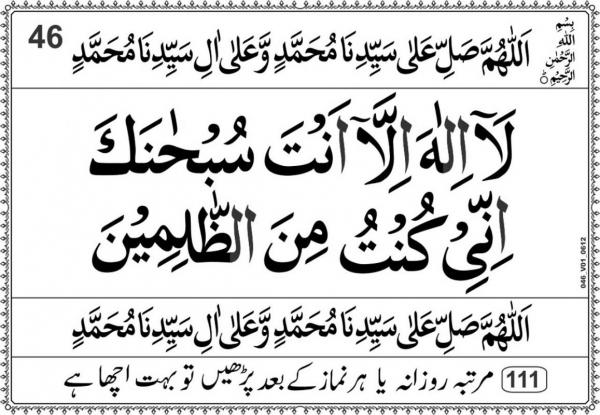 بِسْمِ
اللّٰهِ
الرَّحْمٰنِ
الرَّحِيْمِ
46
اَللّٰهُمَّ صَلِّ عَلٰى سَيِّدِنَا مُحَمَّدٍ وَّعَلٰى اٰلِ سَيِّدِنَا مُحَمَّدٍ
لَآ اِلٰهَ اِلَّآ اَنْتَ سُبْحٰنَكَ
اِنِّىْ كُنْتُ مِنَ الظّٰلِمِيْنَ
046_V01_0612
اَللّٰهُمَّ صَلِّ عَلٰى سَيِّدِنَا مُحَمَّدٍ وَّعَلٰى اٰلِ سَيِّدِنَا مُحَمَّدٍ
111 مرتبہ روزانہ یا ہر نماز کے بعد پڑھیں تو بہت اچھا ہے